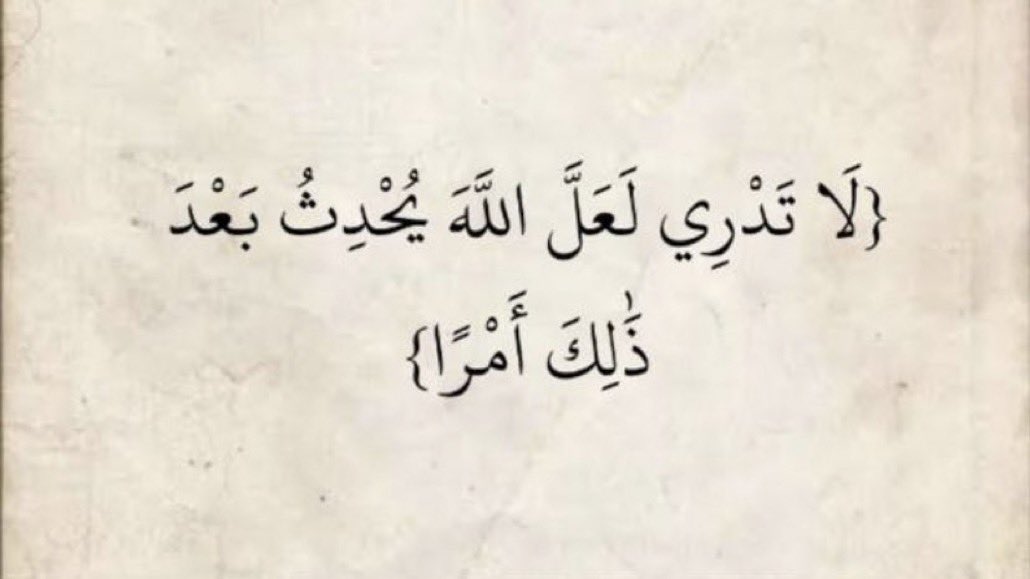 {لَا تَدْرِي لَعَلَّ اللَّهَ يُحْدِثُ بَعْدَ
ذَٰلِكَ أَمْرًا}